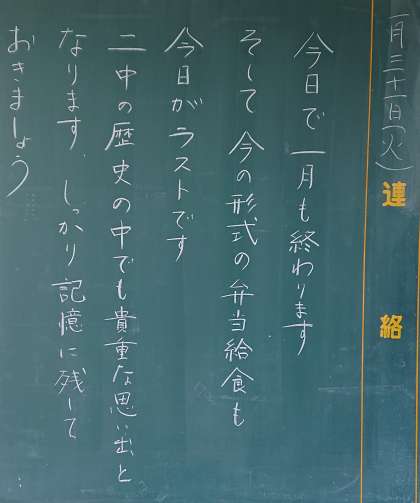 一月三十一日(火)
連絡
今日で一月も終わります
そして今の形式の弁当給食も
今日がラストです
二中の歴史の中でも貴重な思い出と
なります、しっかり記憶に残して
おきましょう